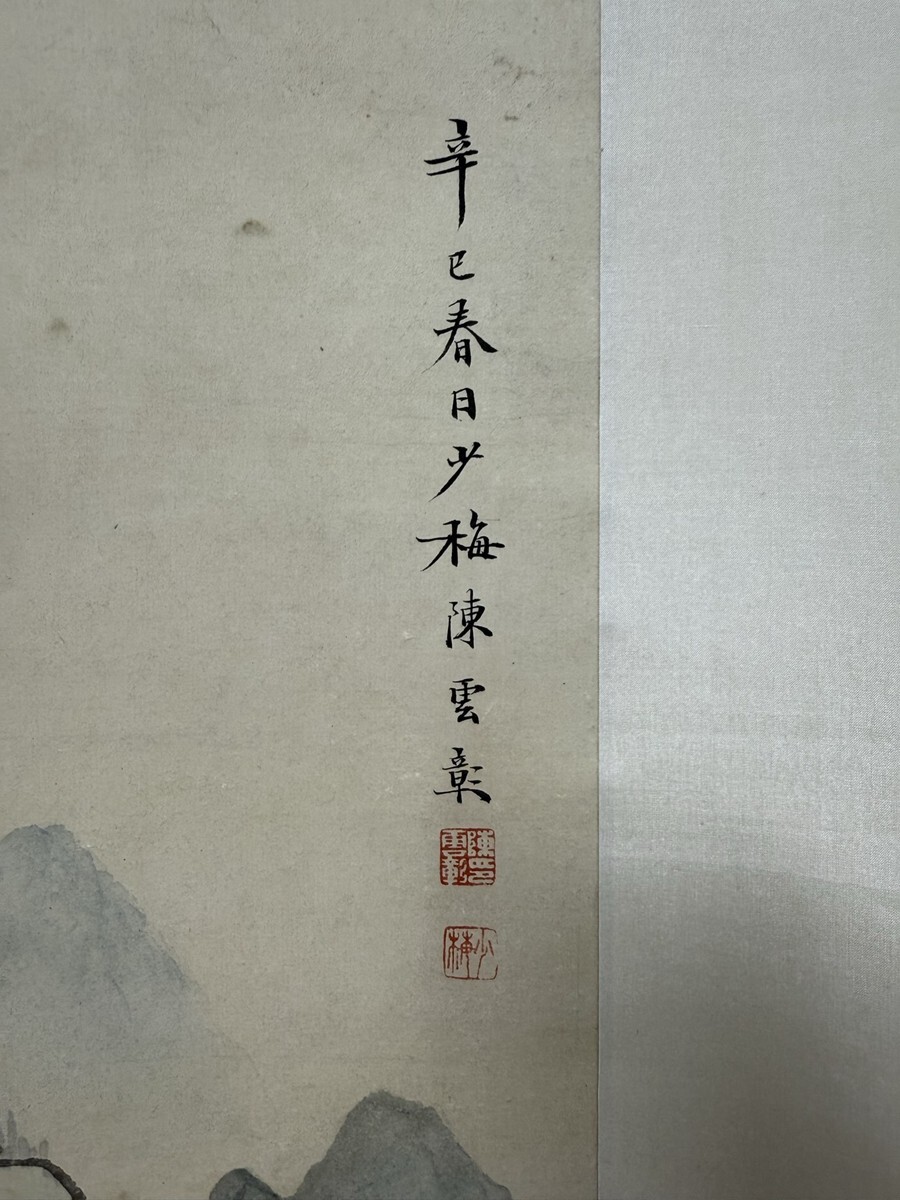 辛巳春日少梅陳雲彰
陳雲彰印
少梅